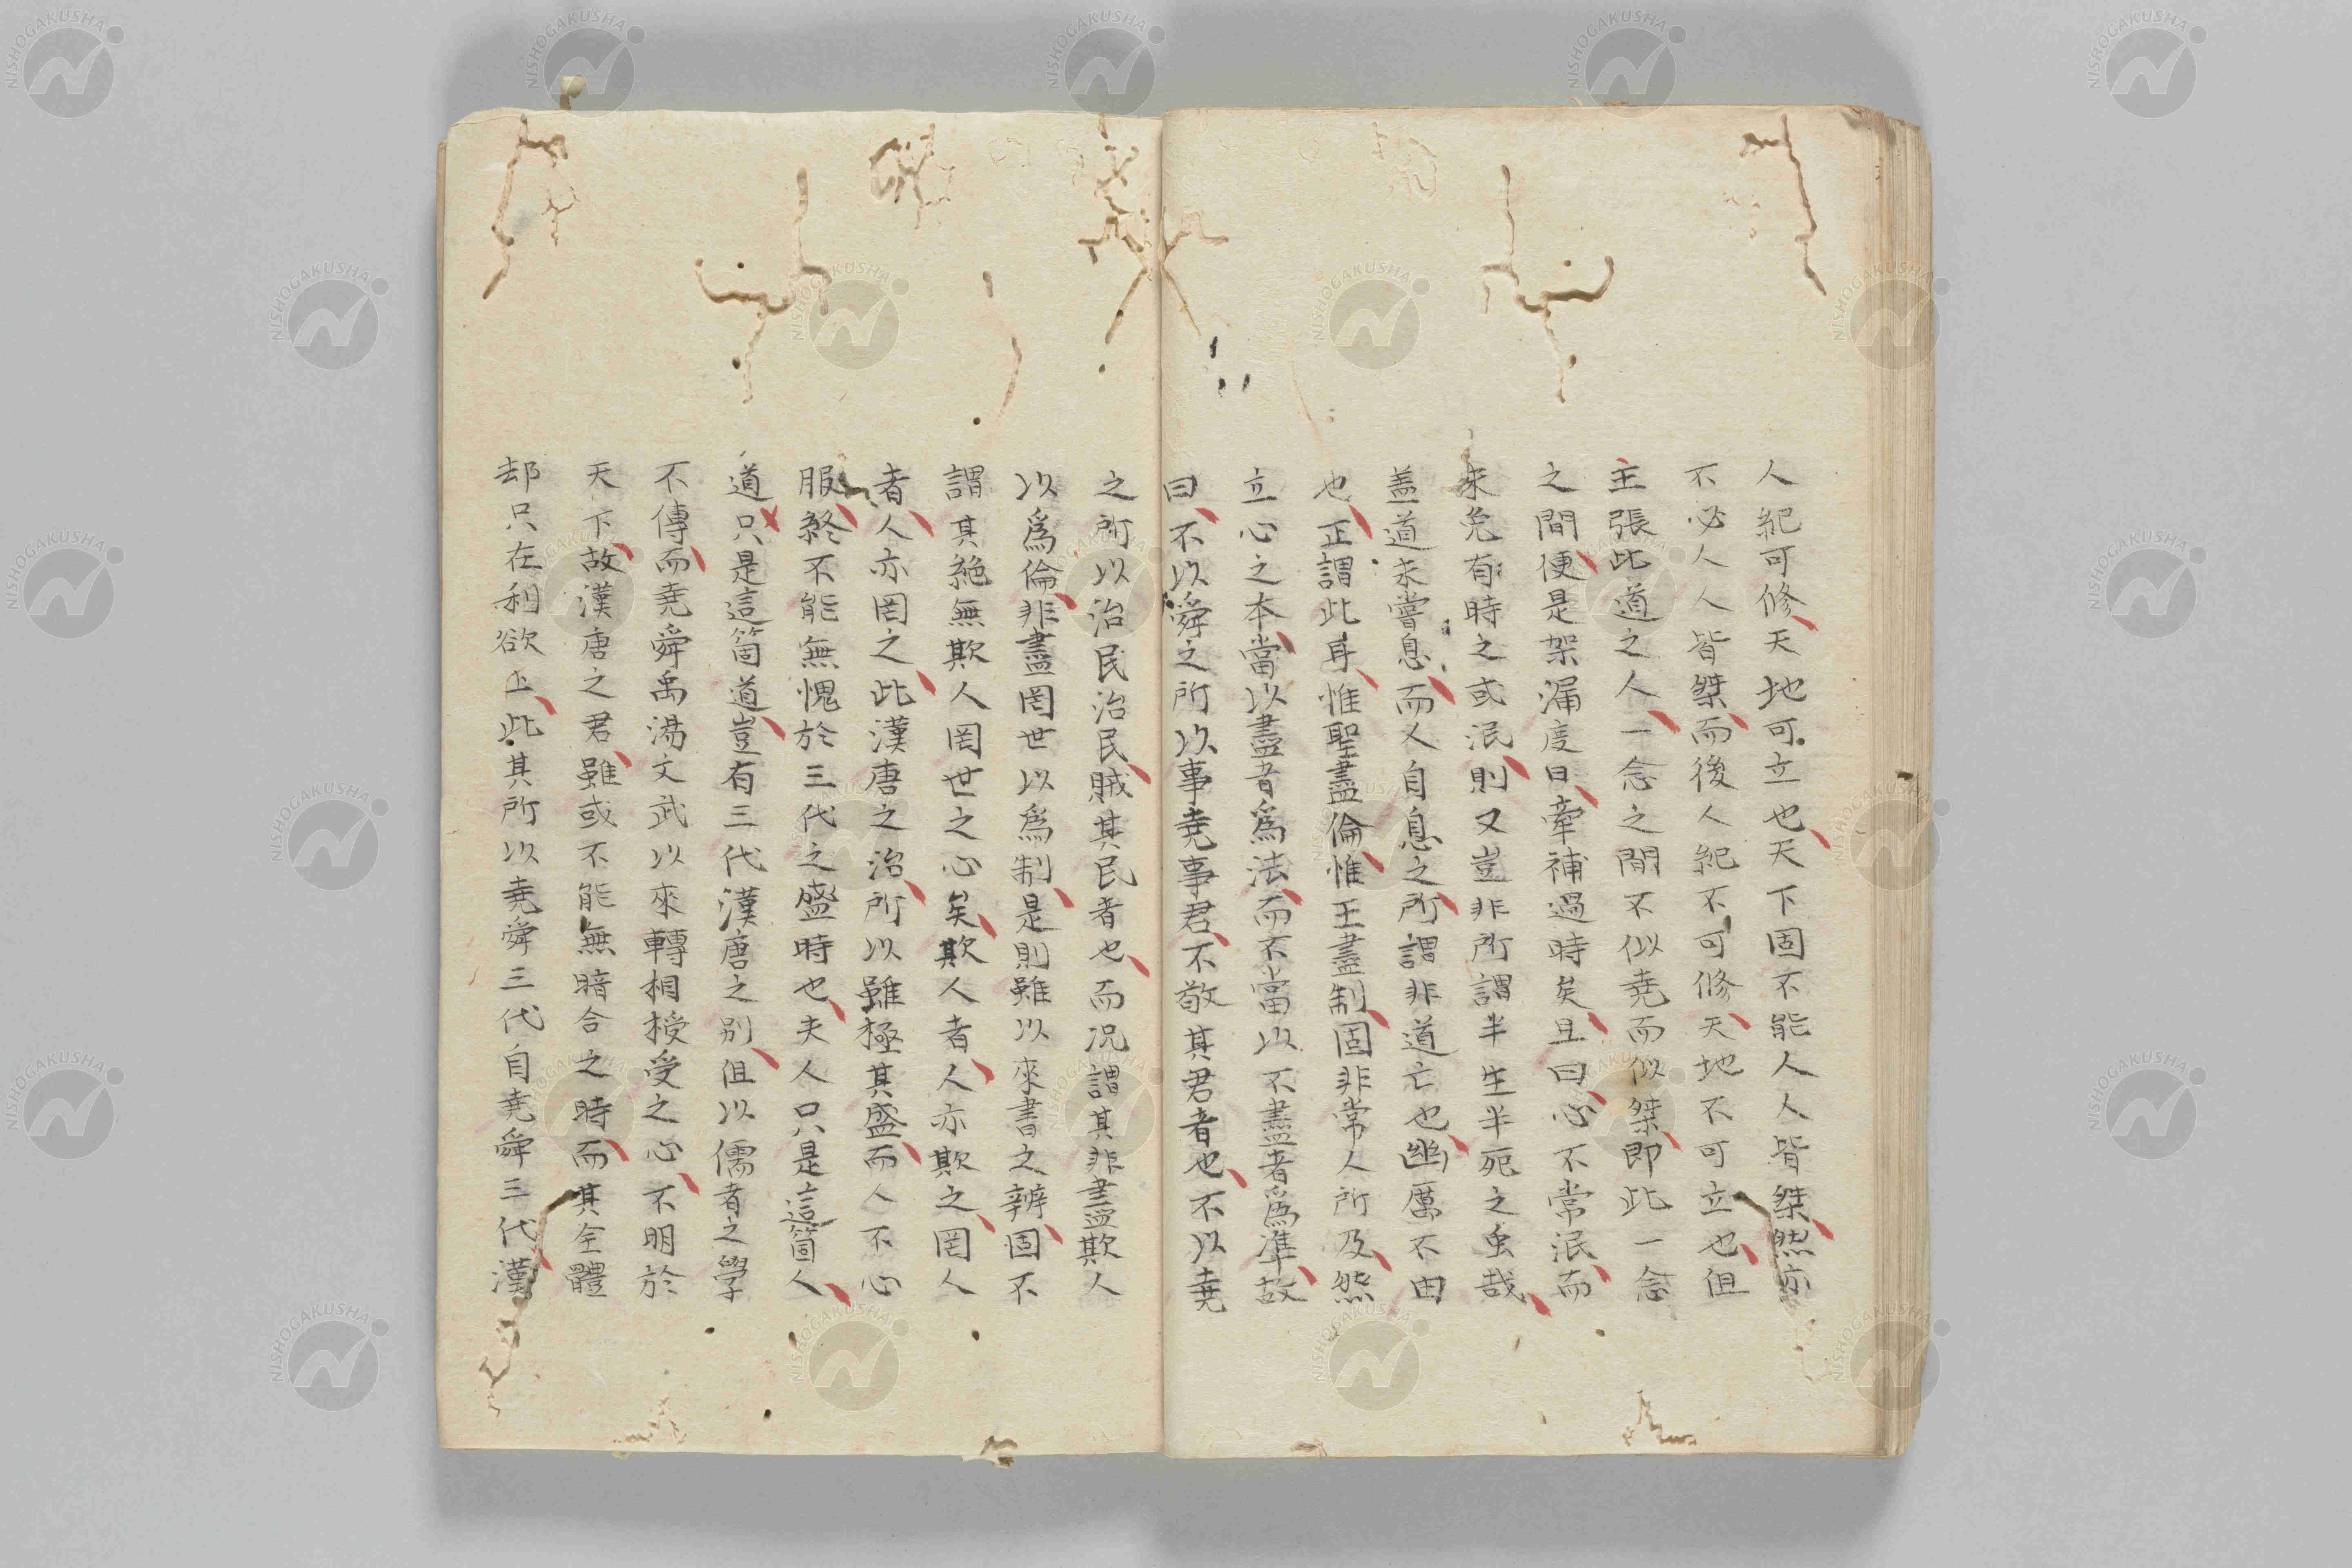 人紀可修天地可立也天下固不能人人皆桀然亦
不必人人皆桀而後人紀不可修天地不可立也但
主張此道之人一念之間不似堯而似桀即此一念
之間便是架漏度日牽補過時矣且曰心不常泯而
未免有時之或泯則又豈非所謂半生半死之虫哉
盖道未嘗息而人自息之所謂非道亡也幽厲不由
也正謂此耳惟聖盡倫惟王盡制固非常人所及然
立心之本當以盡者爲法而不當以不盡者爲準故
曰不以舜之所以事堯事君不敬其君者也不以堯
之所以治民治民賊其民者也而况謂其非盡欺人
以爲倫非盡罔世以爲制是則雖以來書之辨固不
謂其絶無欺人罔世之心矣欺人者人亦欺之罔人
者人亦罔之此漢唐之治所以雖極其盛而人不心
服終不能無愧於三代之盛時也夫人只是這箇人
道只是這箇道豈有三代漢唐之别但以儒者之學
不傳而堯舜禹湯文武以來轉相授受之心不明於
天下故漢唐之君雖或不能無暗合之時而其全體
却只在利欲上此其所以堯舜三代自堯舜三代漢
NISHOGAKUSHA